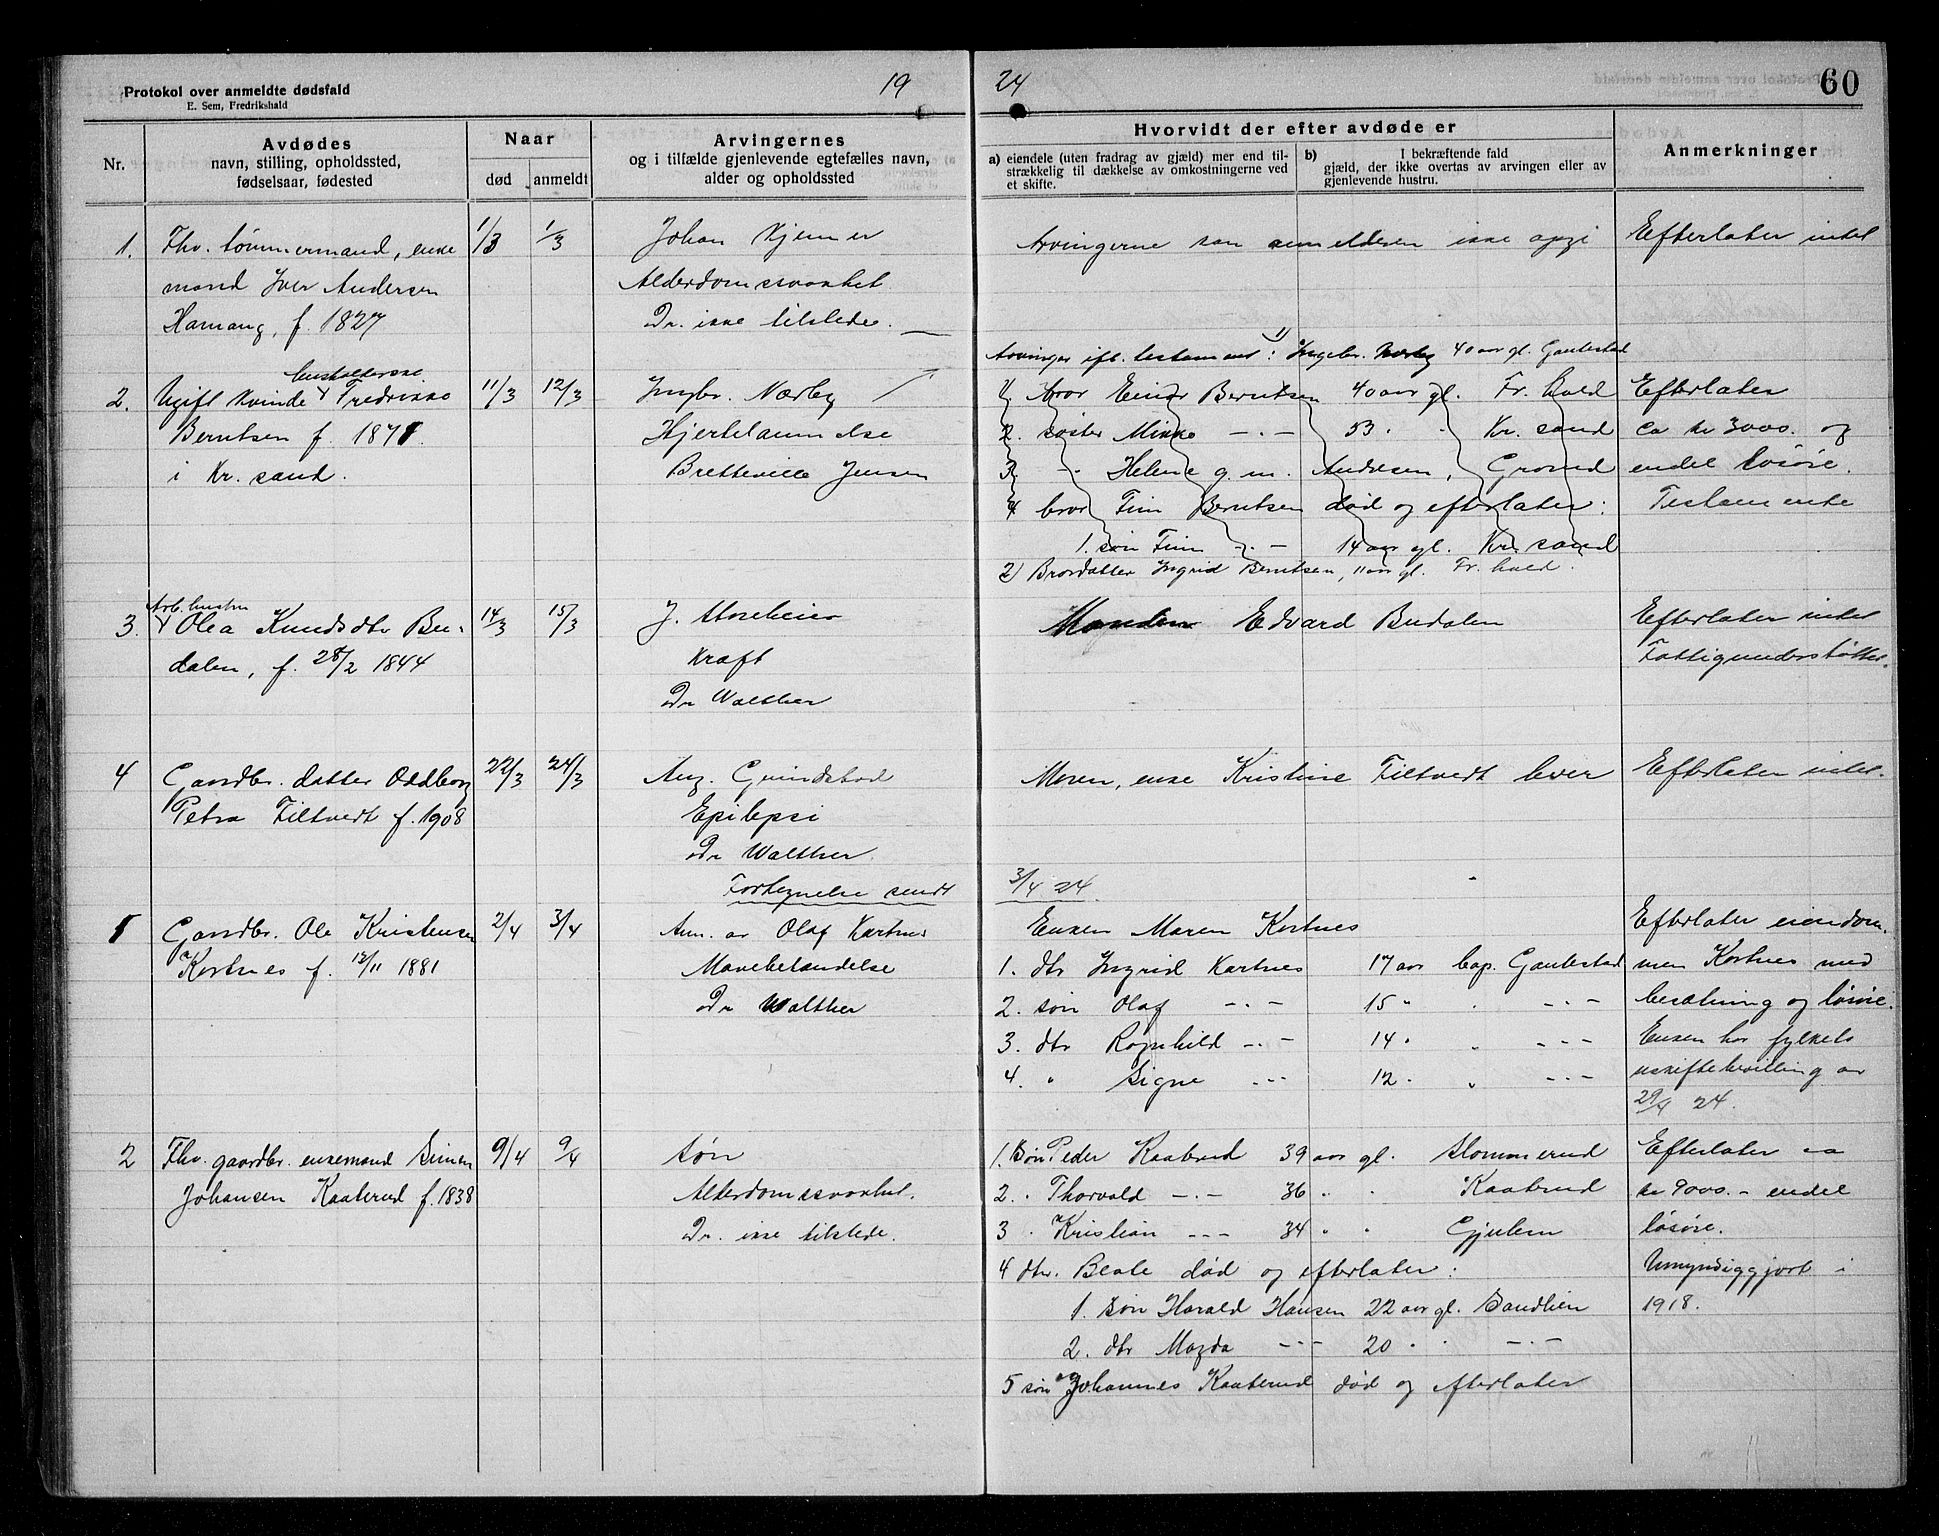 Protokol over anmeldte dødsfald
E. Sem, Fredrikshald
19 24
60
Nr.
Avdødes
navn, stilling, opholdssted,
fødselsaar, fødested
Naar
død
anmeldt
Arvingernes
og i tilfælde gjenlevende egtefælles navn,
alder og opholdssted
Hvorvidt der efter avdøde er
a) eiendele (uten fradrag av gjæld) mer end til-
strækkelig til dækkelse av omkostningerne ved
et skifte.
b) I bekræftende fald
gjæld, der ikke overtas av arvingen eller av
gjenlevende hustru.
Anmerkninger
1. Fhv. tømmermand, enke
mand Iver Andersen
Hamang, f. 1827
1/3
1/3
Johan Kjemer
Alderdomssvakhet
Dr. ikke tilstede.
Arvingerne kan anmelderen ikke opgi
Efterlater intet
2. Ugift kvinde husholderske Fredrikke
Berntsen f. 1871.
i Kr. sand.
11/3
12/3
Ingbr. Nærby
Hjertelammelse
Bretteville Jensen
Arvinger ifl. testament: 1) Ingebr. Nærby 40 aar gl. Gautestad
1. bror Einar Berntsen 40 aar gl. Fr. hald
2. søster Mikke -.- 53 " " Kr. sand
3. -"- Helene g. m. Andresen, Grorud
4 bror Finn Berntsen død og efterlater:
1. søn Finn -.- 14 aar gl. Kr. sand
2) Brordatter Ingrid Berntsen, 11 aar gl. Fr. hald.
Efterlater
ca kr 3000. og
endel løsøre.
Testamente
3. Arb. hustru Olea Knudsdtr Bu-
dalen, f. 28/2 1844
14/3
15/3
J. Storeheier
Kræft
Dr Walther
Manden Edvard Budalen
Efterlater intet
Fattigunderstøttet.
4 Gaardbr. datter Oddborg
Petra Tiltvedt f. 1908
22/3
24/3
Aug. Grindstad
Epilepsi
Dr Walther.
Moren, enke Kristine Tiltvedt lever
Efterlater intet.
Fortegnelse sendt 3/4 24.
1 Gaardbr. Ole Kristensen
Kortnes f. 12/11 1881
2/4
3/4
Anm. av Olaf Kortnes
Mavebetændelse
Dr Walther
Enken Maren Kortnes
1. dtr Ingrid Kortnes 17 aar bop. Gautestad
2. søn Olaf -.- 15 " " -.-
3. dtr Ragnhild -.- 14 " " -.-
4. " Signe -.- 12 " " -.-
Efterlater eiendom-
men Kortnes med
besætning og løsøre.
Enken har fylkets
uskiftebevilling av
29/4 24.
2 Fhv. gaardbr. enkemand Simen
Johansen Kaaterud f. 1838
9/4
9/4
Søn
Alderdomssvakhet.
Dr. ikke tilstede.
1. Søn Peder Kaaterud 39 aar gl. Slommerud
2. " Thorvald -.- 36 " " Kaaterud
3 " Kristian -.- 34 " " Gjulem
4 dtr. Beate død og efterlater:
1. søn Harald Hansen 22 aar gl. Sandlien
2. dtr Magda -.- 20 " " -.-
5 søn Johannes Kaaterud død og efterlater
Efterlater ca
kr 9000.- endel
løsøre.
Umyndiggjort i
1918.